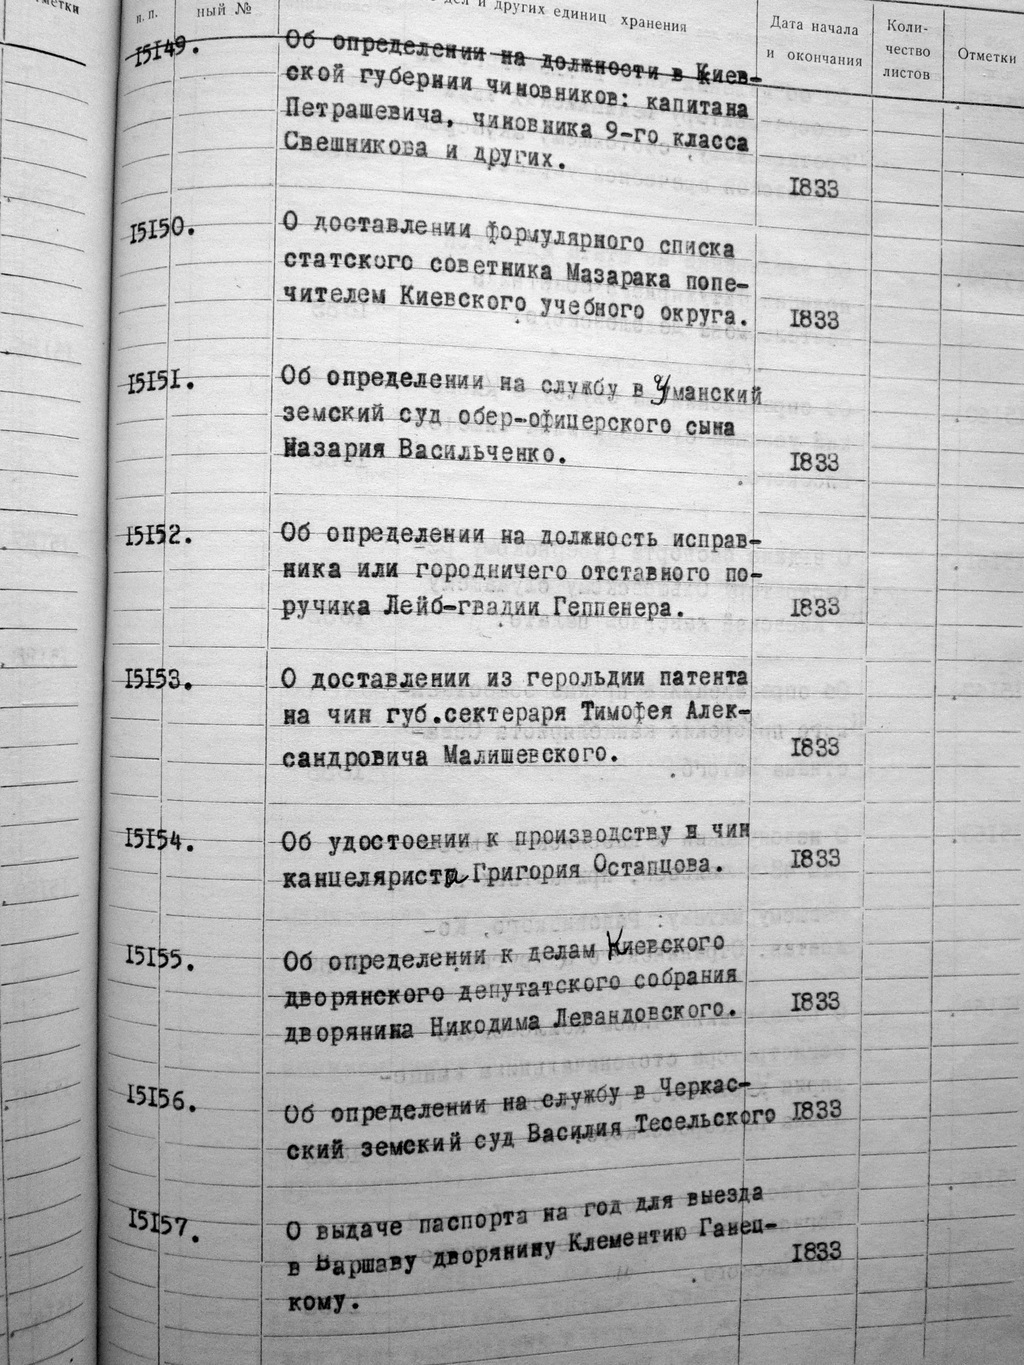 метки
п. п.
ный №
дел и других единиц хранения
Дата начала
и окончания
Коли-
чество
листов
Отметки
15149.
Об определении на должности в Киев-
ской губернии чиновников: капитана
Петрашевича, чиновника 9-го класса
Свешникова и других.
1833
15150.
О доставлении формулярного списка
статского советника Мазарака попе-
чителем Киевского учебного округа.
1833
15151.
Об определении на службу в Уманский
земский суд обер-офицерского сына
Назария Васильченко.
1833
15152.
Об определении на должность исправ-
ника или городничего отставного по-
ручика Лейб-гвадии Геппенера.
1833
15153.
О доставлении из герольдии патента
на чин губ.сектераря Тимофея Алек-
сандровича Малишевского.
1833
15154.
Об удостоении к производству в чин
канцеляриста Григория Остапцова.
1833
15155.
Об определении к делам Киевского
дворянского депутатского собрания
дворянина Никодима Левандовского.
1833
15156.
Об определении на службу в Черкас-
ский земский суд Василия Тесельского
1833
15157.
О выдаче паспорта на год для выезда
в Варшаву дворянину Клементию Ганец-
кому.
1833